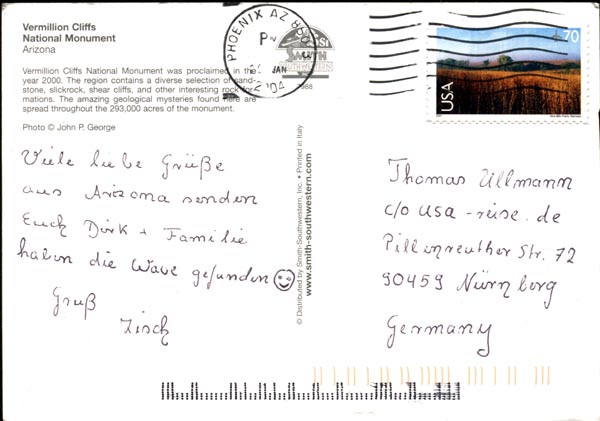 Vermillion Cliffs
National Monument
Arizona
Vermillion Cliffs National Monument was proclaimed in the
year 2000. The region contains a diverse selection of sand-
stone, slickrock, shear cliffs, and other interesting rock for-
mations. The amazing geological mysteries found here are
spread throughout the 293,000 acres of the monument.
Photo © John P. George
Viele liebe Grüße
aus Arizona senden
Euch Dirk + Familie
haben die Wave gefunden
Gruß
Zisch
PHOENIX AZ
JAN
2004
SMITH
1988
© Distributed by Smith-Southwestern, Inc. • Printed in Italy
www.smith-southwestern.com
70
USA
Thomas Ullmann
c/o usa-reise.de
Pillenreuther Str. 72
90459 Nürnberg
Germany